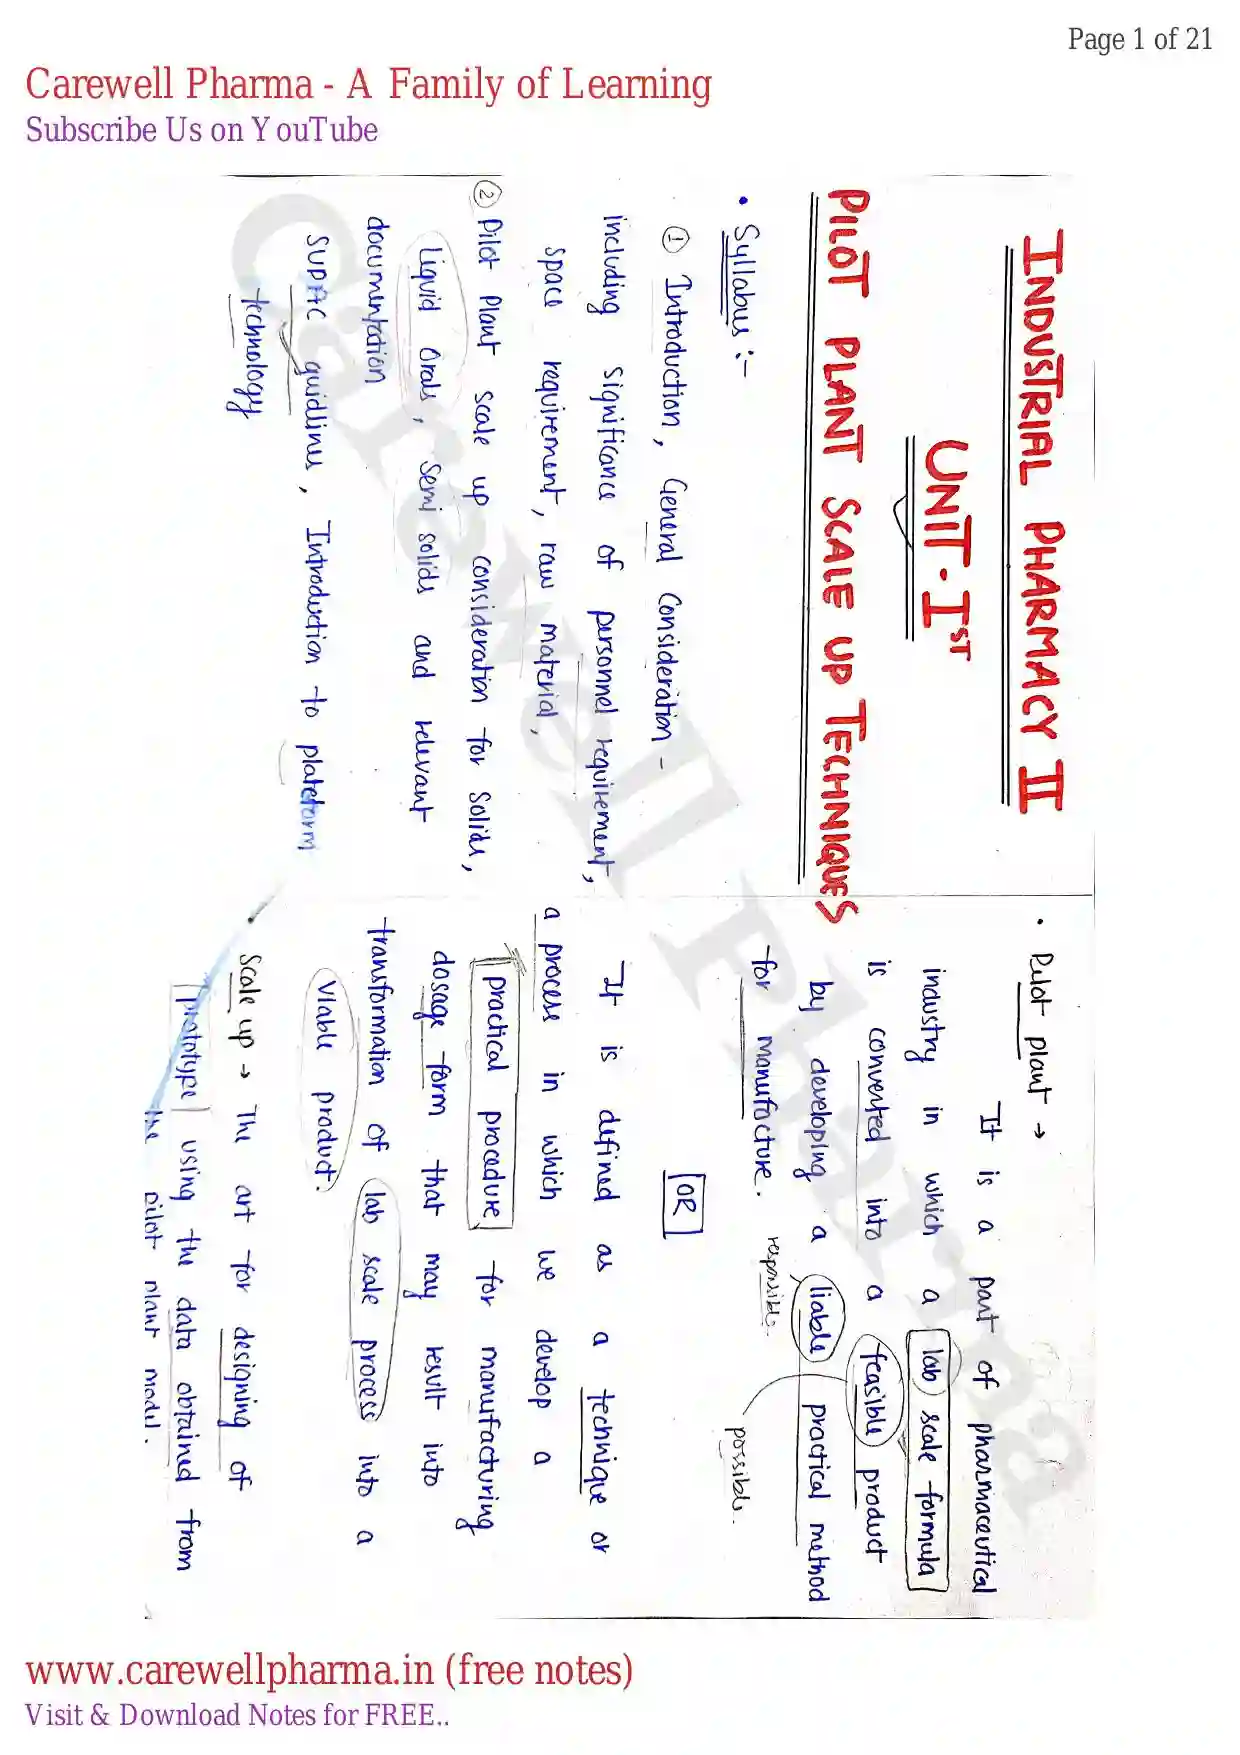 Page 1 of 21
Carewell Pharma - A Family of Learning
Subscribe Us on YouTube
INDUSTRIAL PHARMACY II
UNIT - IST
PILOT PLANT SCALE UP TECHNIQUES
• Syllabus :-
① Introduction, General Consideration -
including significance of personnel requirement,
space requirement, raw material,
② Pilot Plant scale up consideration for Solids,
Liquid Orals, semi solids and relevant
documentation
SUPAC guidlines, Introduction to plateform
technology
• Pilot plant →
It is a part of pharmaceutical
industry in which a lab scale formula
is converted into a feasible product
by developing a liable practical method
for manufacture.
responsible.
possible.
OR
It is defined as a technique or
a process in which we develop a
practical procedure for manufacturing
dosage form that may result into
transformation of lab scale process into a
viable product.
• Scale up → The art for designing of
prototype using the data obtained from
the pilot plant model.
Carewell Pharma
www.carewellpharma.in (free notes)
Visit & Download Notes for FREE..